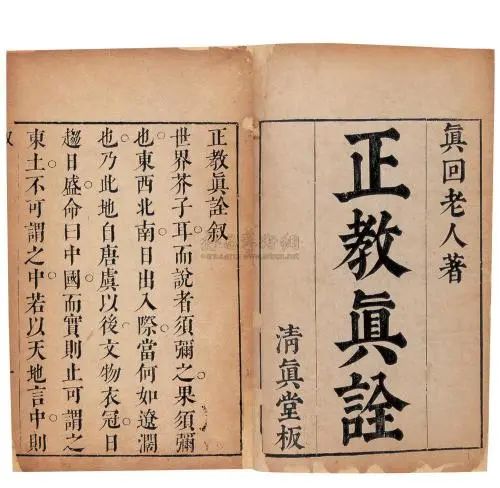 眞回老人著
正教眞詮
清眞堂板
正教眞詮叙
世界芥子耳而說者須彌之果須彌
也東西北南日出入際當何如遼濶
也乃此地自唐虞以後文物衣冠日
趨日盛命曰中國而實則止可謂之
東土不可謂之中若以天地言中則